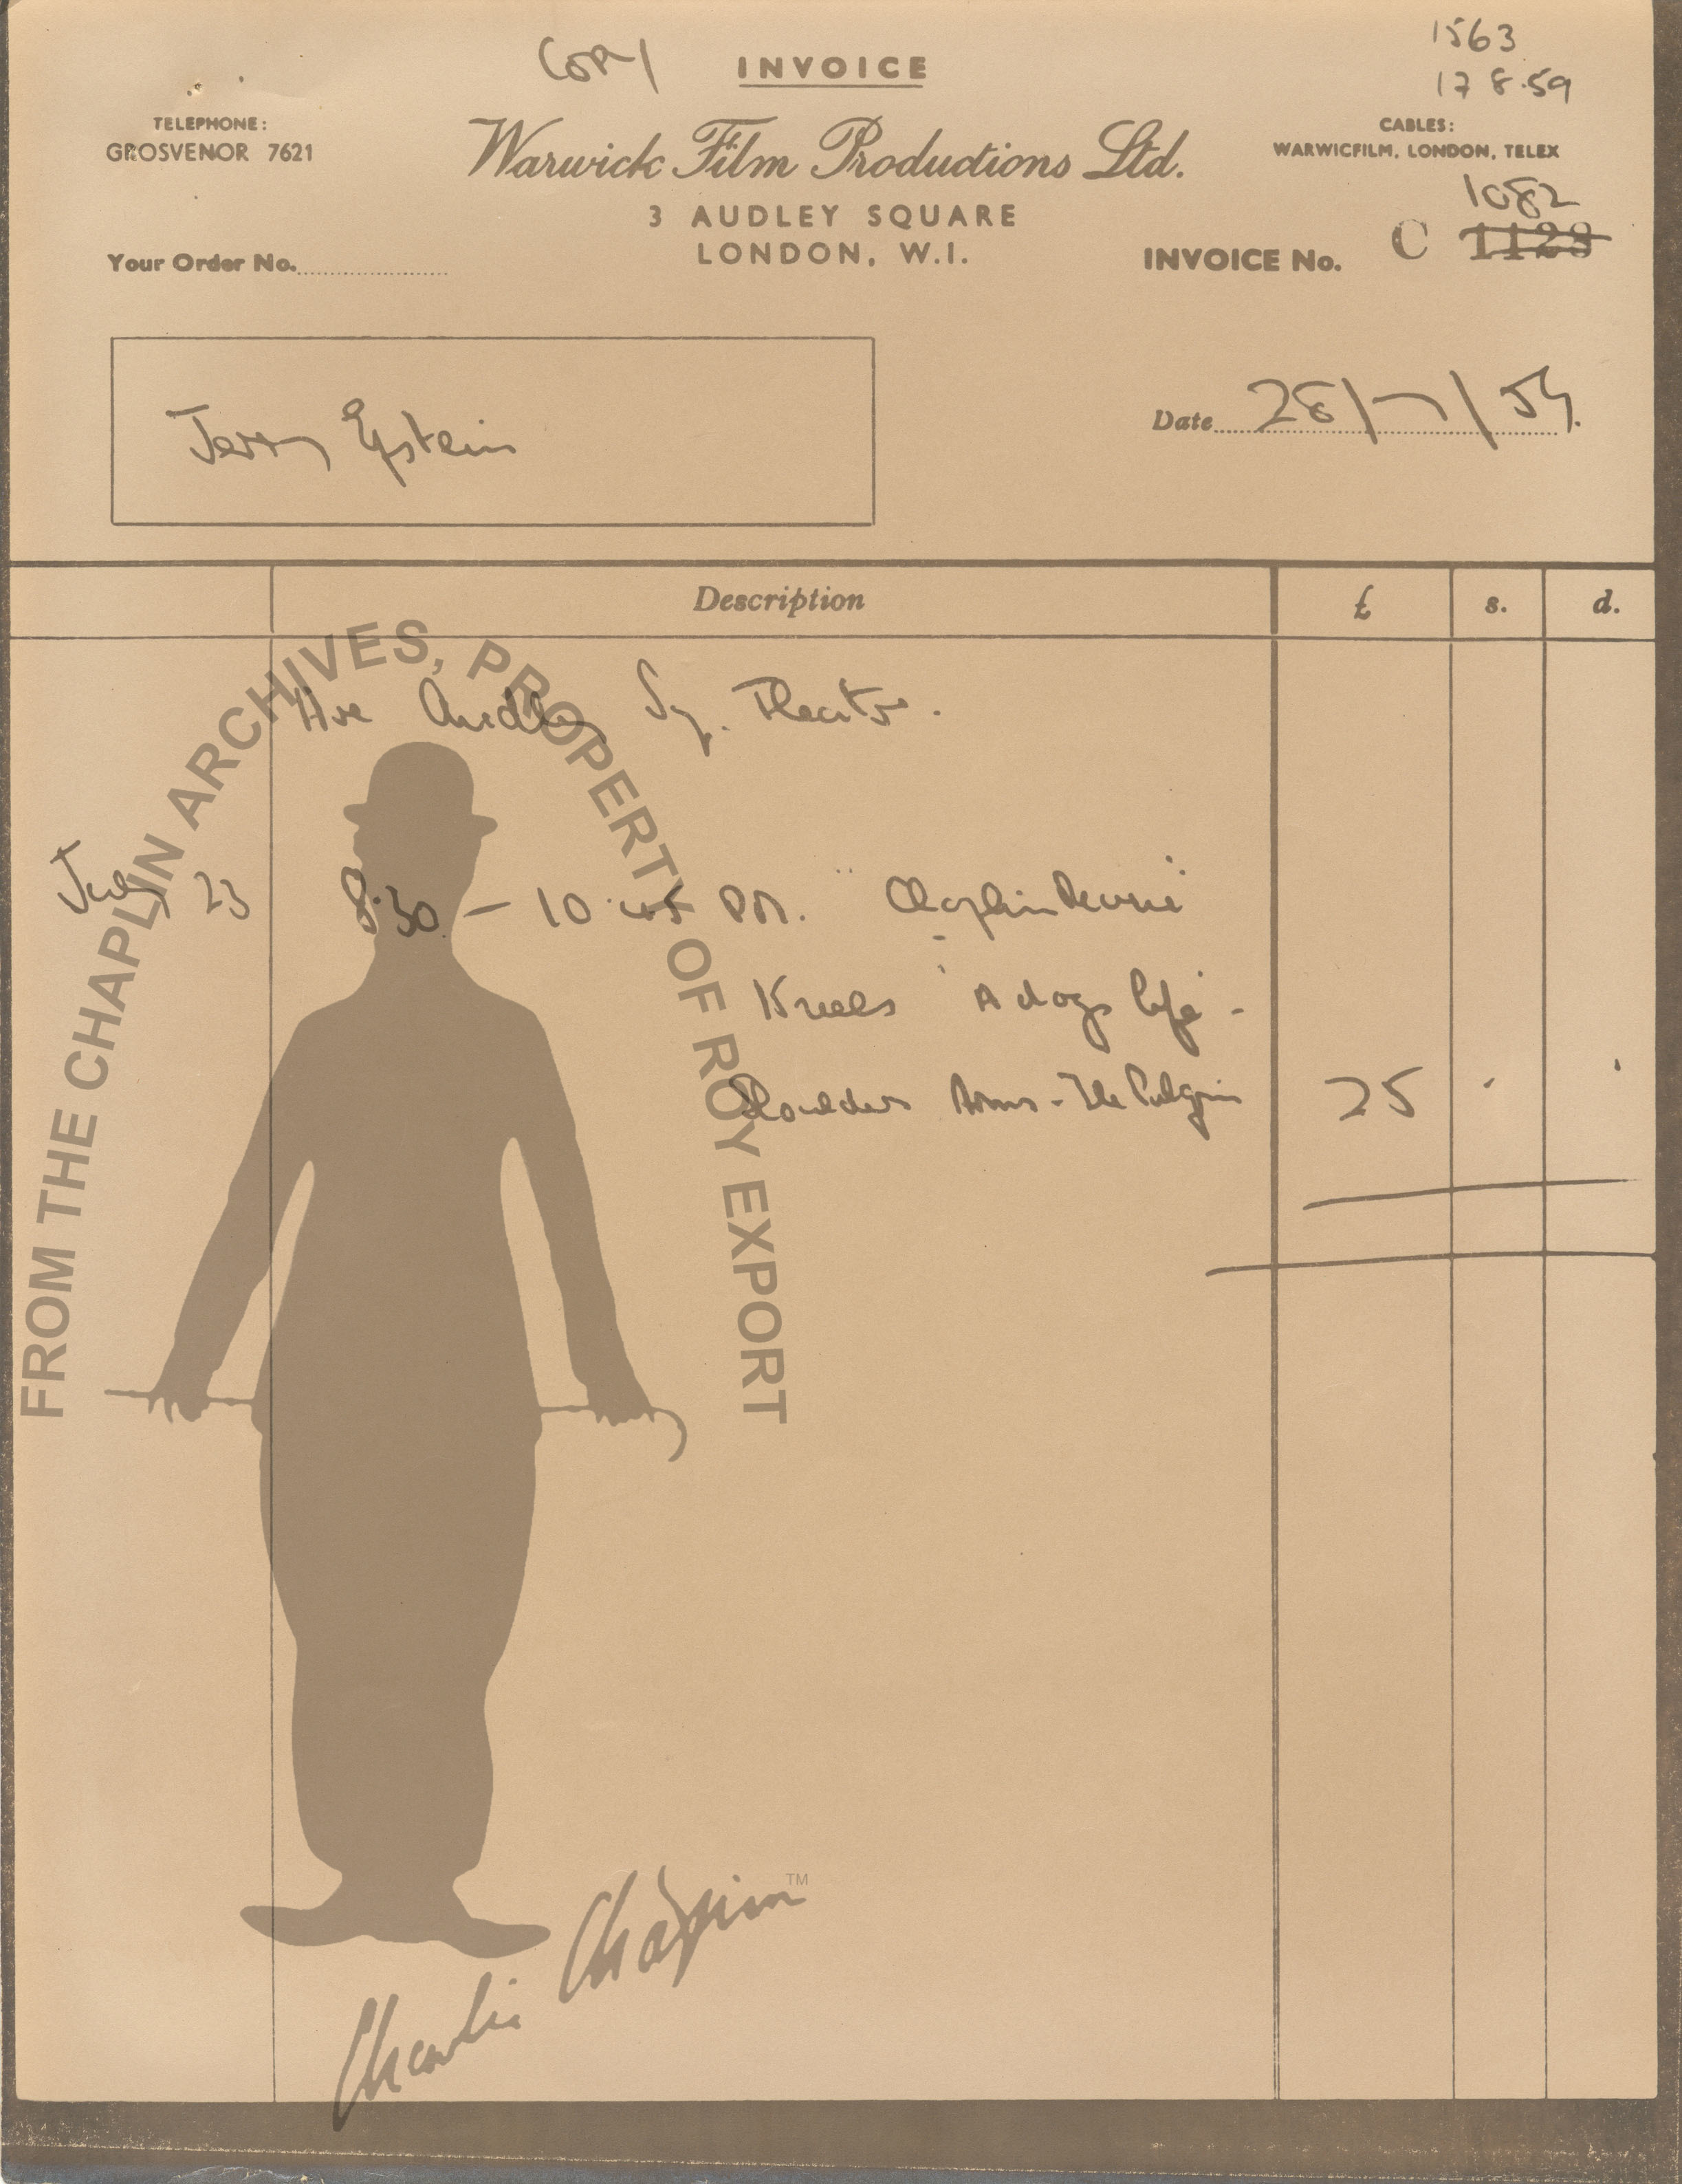 COPY INVOICE 1563
17 8.59
TELEPHONE:
GROSVENOR 7621
Warwick Film Productions Ltd.
CABLES:
WARWICFILM, LONDON, TELEX
3 AUDLEY SQUARE
LONDON, W.I.
Your Order No.
1082
INVOICE No. C 1128
Jerry Epstein
Date 28/7/59.
Description £ s. d.
Hire Audley Sq. Theatre.
July 23 8.30 — 10.45 PM. "Chaplin Revue"
"A dogs life -
Shoulder Arms - The Pilgrim 25
FROM THE CHAPLIN ARCHIVES, PROPERTY OF ROY EXPORT
Charlie Chaplin™